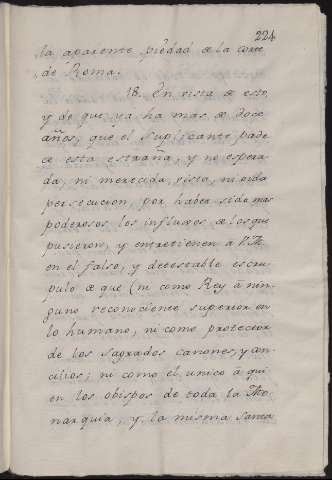 224
la aparente piedad de la corte
de Roma.
18. En vista de esto,
y de que ya ha mas de doce
años, que el suplicante pade
ce esta estraña, y no espera
da, ni merecida, vista, ni oida
persecucion, por haber sido mas
poderosos los influxos de los que
pusieron, y entretienen à V.M.
en el falso, y detestable escru
pulo de que (ni como Rey à nin
guno reconociente superior en
lo humano, ni como protector
de los sagrados canones, y con
cilios; ni como el unico à qui
en los obispos de toda la Mo
narquia, y la misma Santa